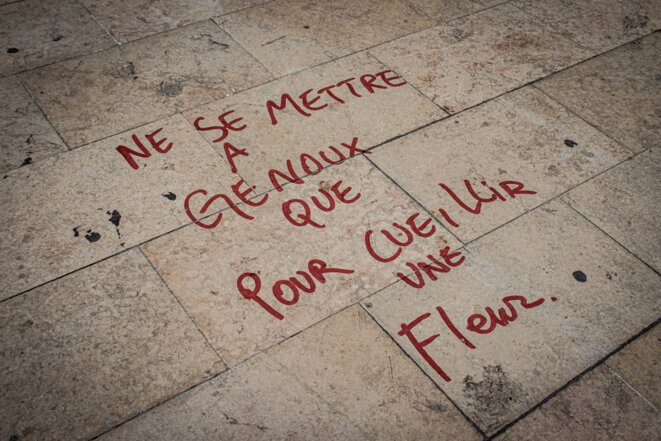 NE SE METTRE
A
GENOUX
QUE
POUR CUEILLIR
UNE
Fleur.